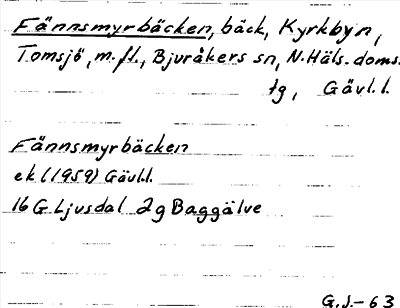 Fännsmyrbäcken, bäck, Kyrkbyn,
Tomsjö, m.fl., Bjuråkers sn, N.Häls. doms.
tg, Gävl.l.
Fännsmyrbäcken
ek (1959) Gävl.l.
16 G Ljusdal 2g Baggälve
G.J.-63